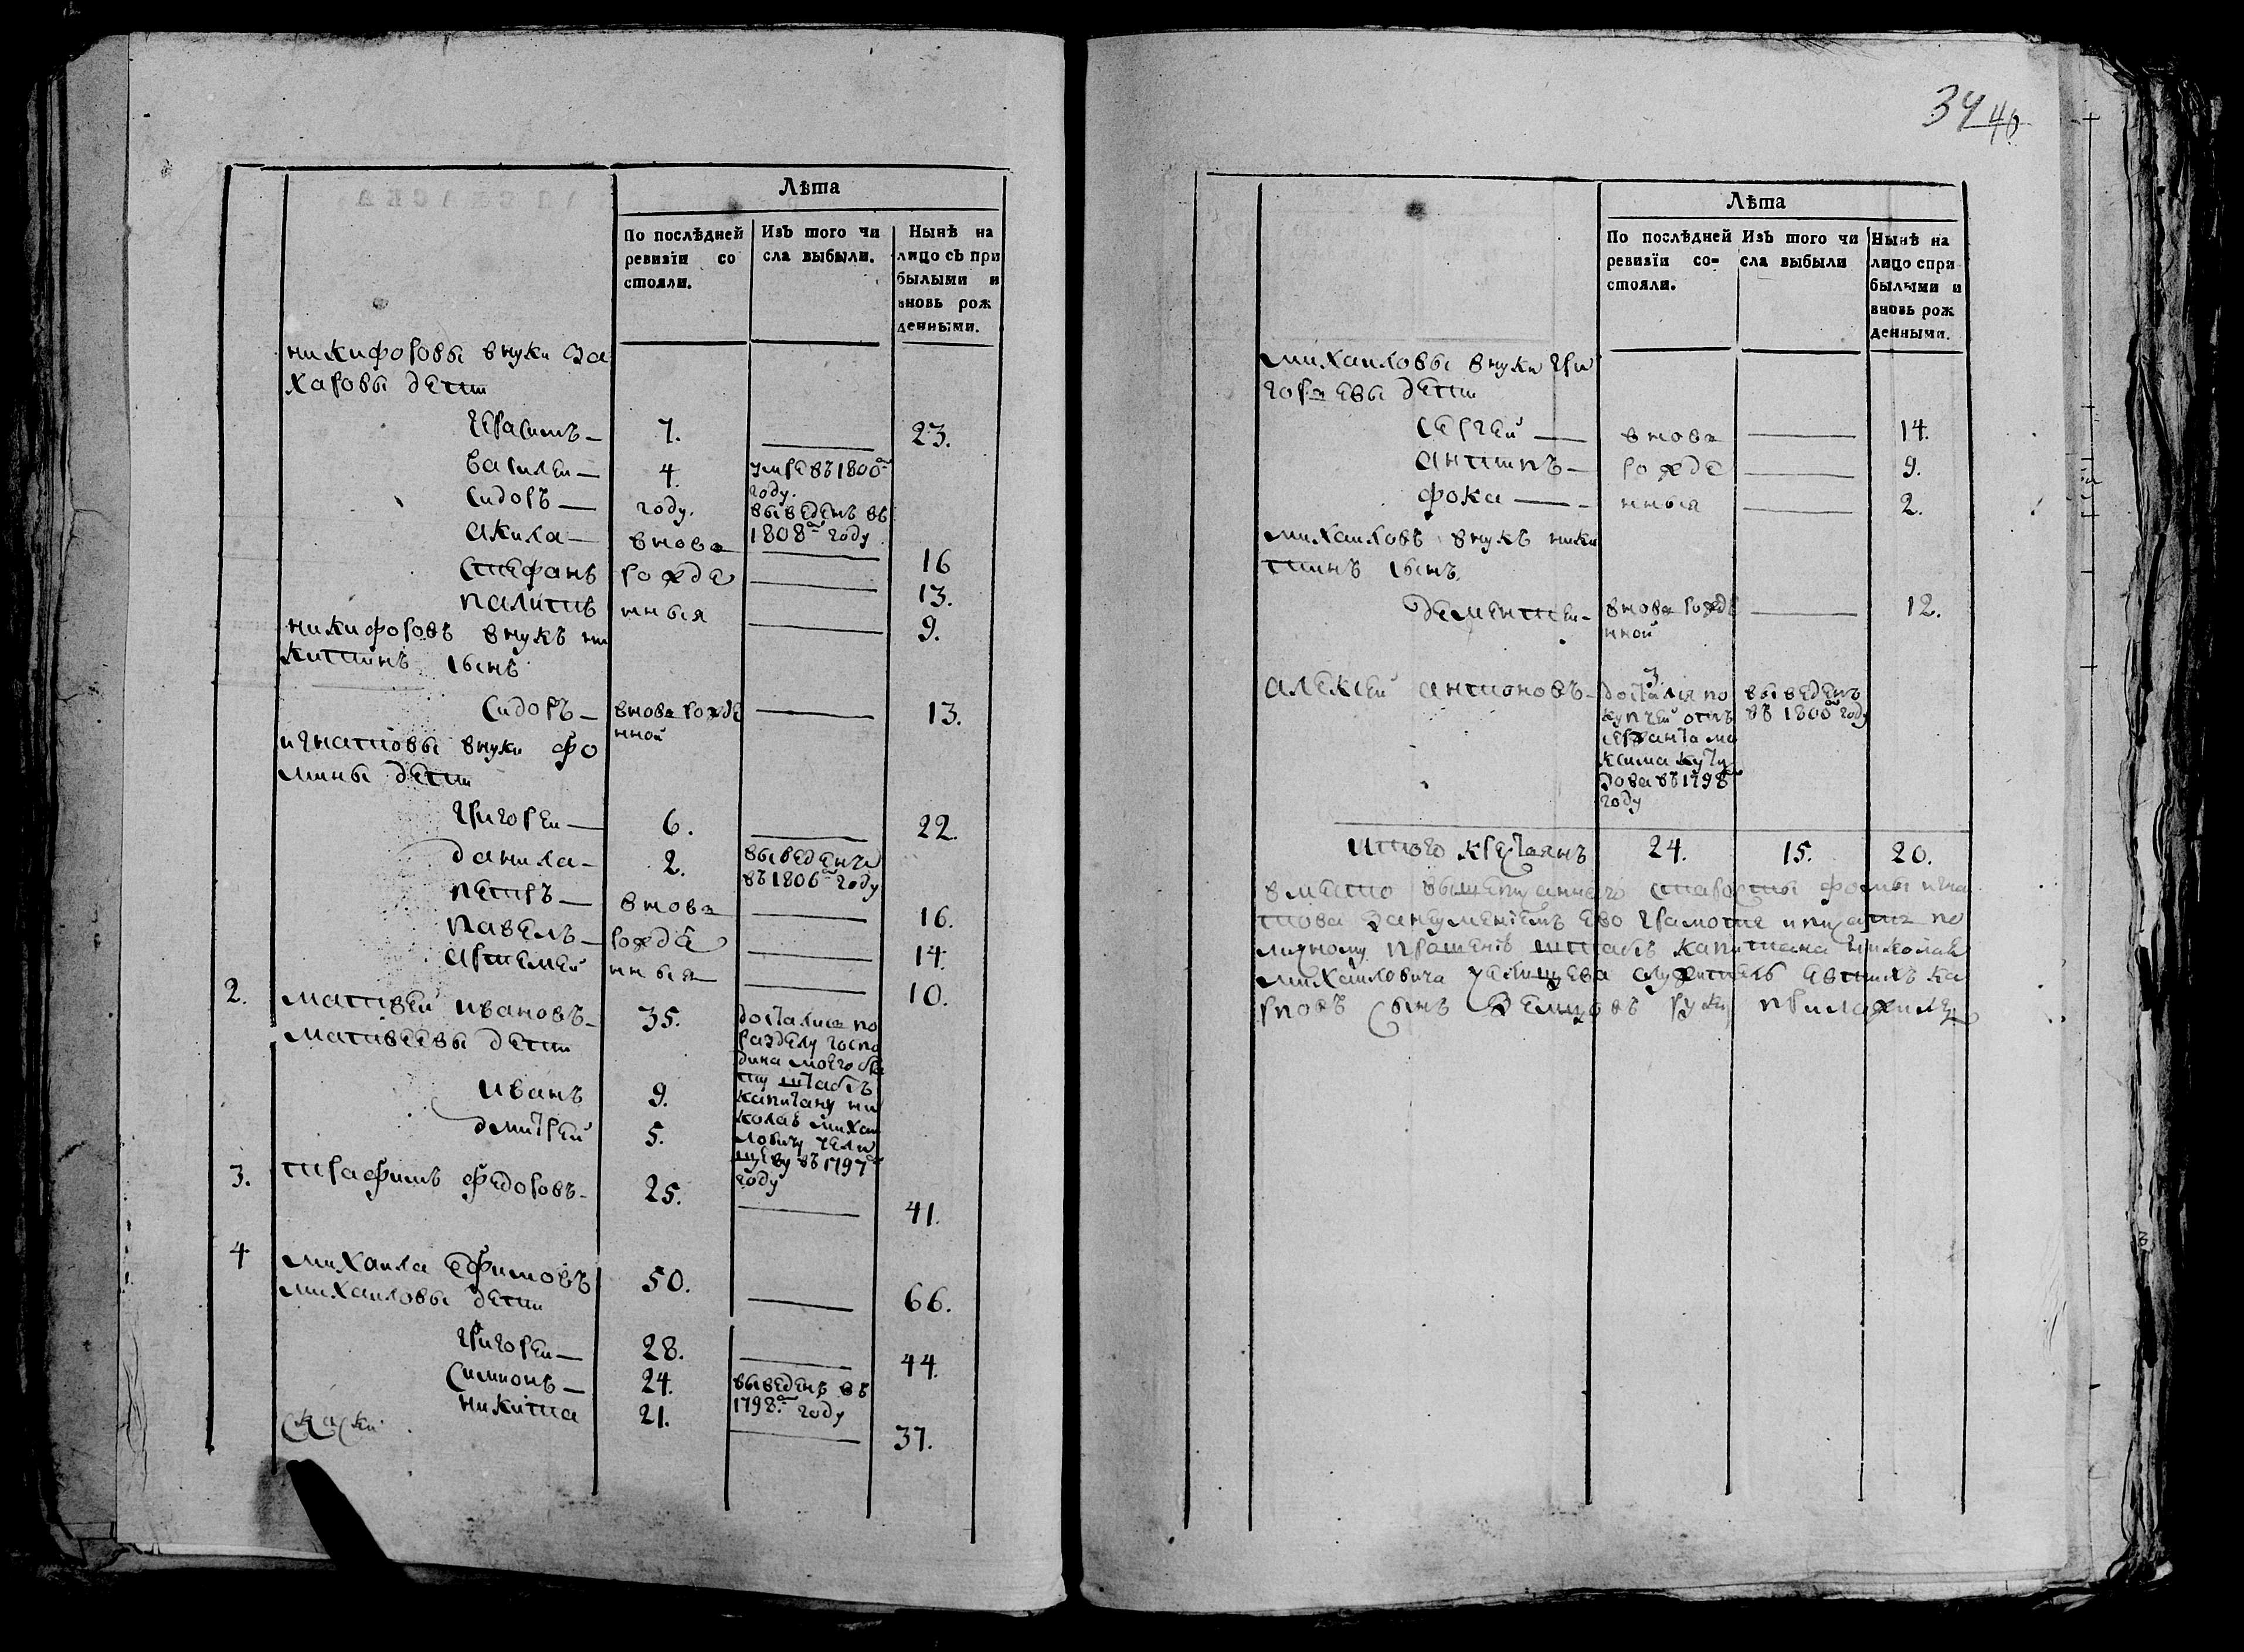 Лѣта
По послѣдней ревизіи со стояли.
Изъ того чи сла выбыли.
Нынѣ на лицо съ при былыми и вновь рож денными.
никифоровы внуки за
харовы дети
герасимъ 7. — 23.
василеи 4. умре въ 1800м году.
сидоръ году. выведенъ въ 1808м году
акила внове — 16
стефанъ рожде — 13.
палитъ нныя — 9.
никифоровъ внукъ ни
китинъ сынъ
сидоръ внове рожде нной — 13.
игнатовы внуки фо
мины дети
григореи 6. — 22.
данила 2. выведенъ въ 1806м году
петръ внове — 16.
павелъ рожде — 14.
артемеи нныя — 10.
2. матвеи ивановъ 35. досталися по
матвеевы дети разделу госпо
дина моего бра
иванъ 9. ту штабсъ
капитану ни
дмитреи 5. колаю михаи
ловичу чели
щеву въ 1797м
году
3. трафимъ федоровъ 25. — 41.
4 михаила ефимовъ 50. — 66.
михаиловы дети
григореи 28. — 44.
симионъ 24. выведенъ въ 1798м году
никита 21. — 37.
скаски
34 40
Лѣта
По послѣдней ревизіи со- стояли.
Изъ того чи сла выбыли
Нынѣ на лицо спри былыми и вновь рож денными.
михаиловы внуки гри
горьевы дети
сергеи внове — 14.
антипъ рожде — 9.
фока нныя — 2.
михаиловъ внукъ ники
тинъ сынъ
дементеи внове рожде нной — 12.
3
алексеи антоновъ достался по выведенъ
купчеи отъ въ 1800м году
сержанта ма
ксима куту
зова въ 1798м
году
итого крестьянъ 24. 15. 20.
вместо вышеписаннаго старосты фомы игна
това занеумениемъ ево грамоте и писать по
личному прошению штабсъ капитана николая
михаиловича челищева служитель евтихъ ка
рповъ сынъ земцовъ руку приложилъ